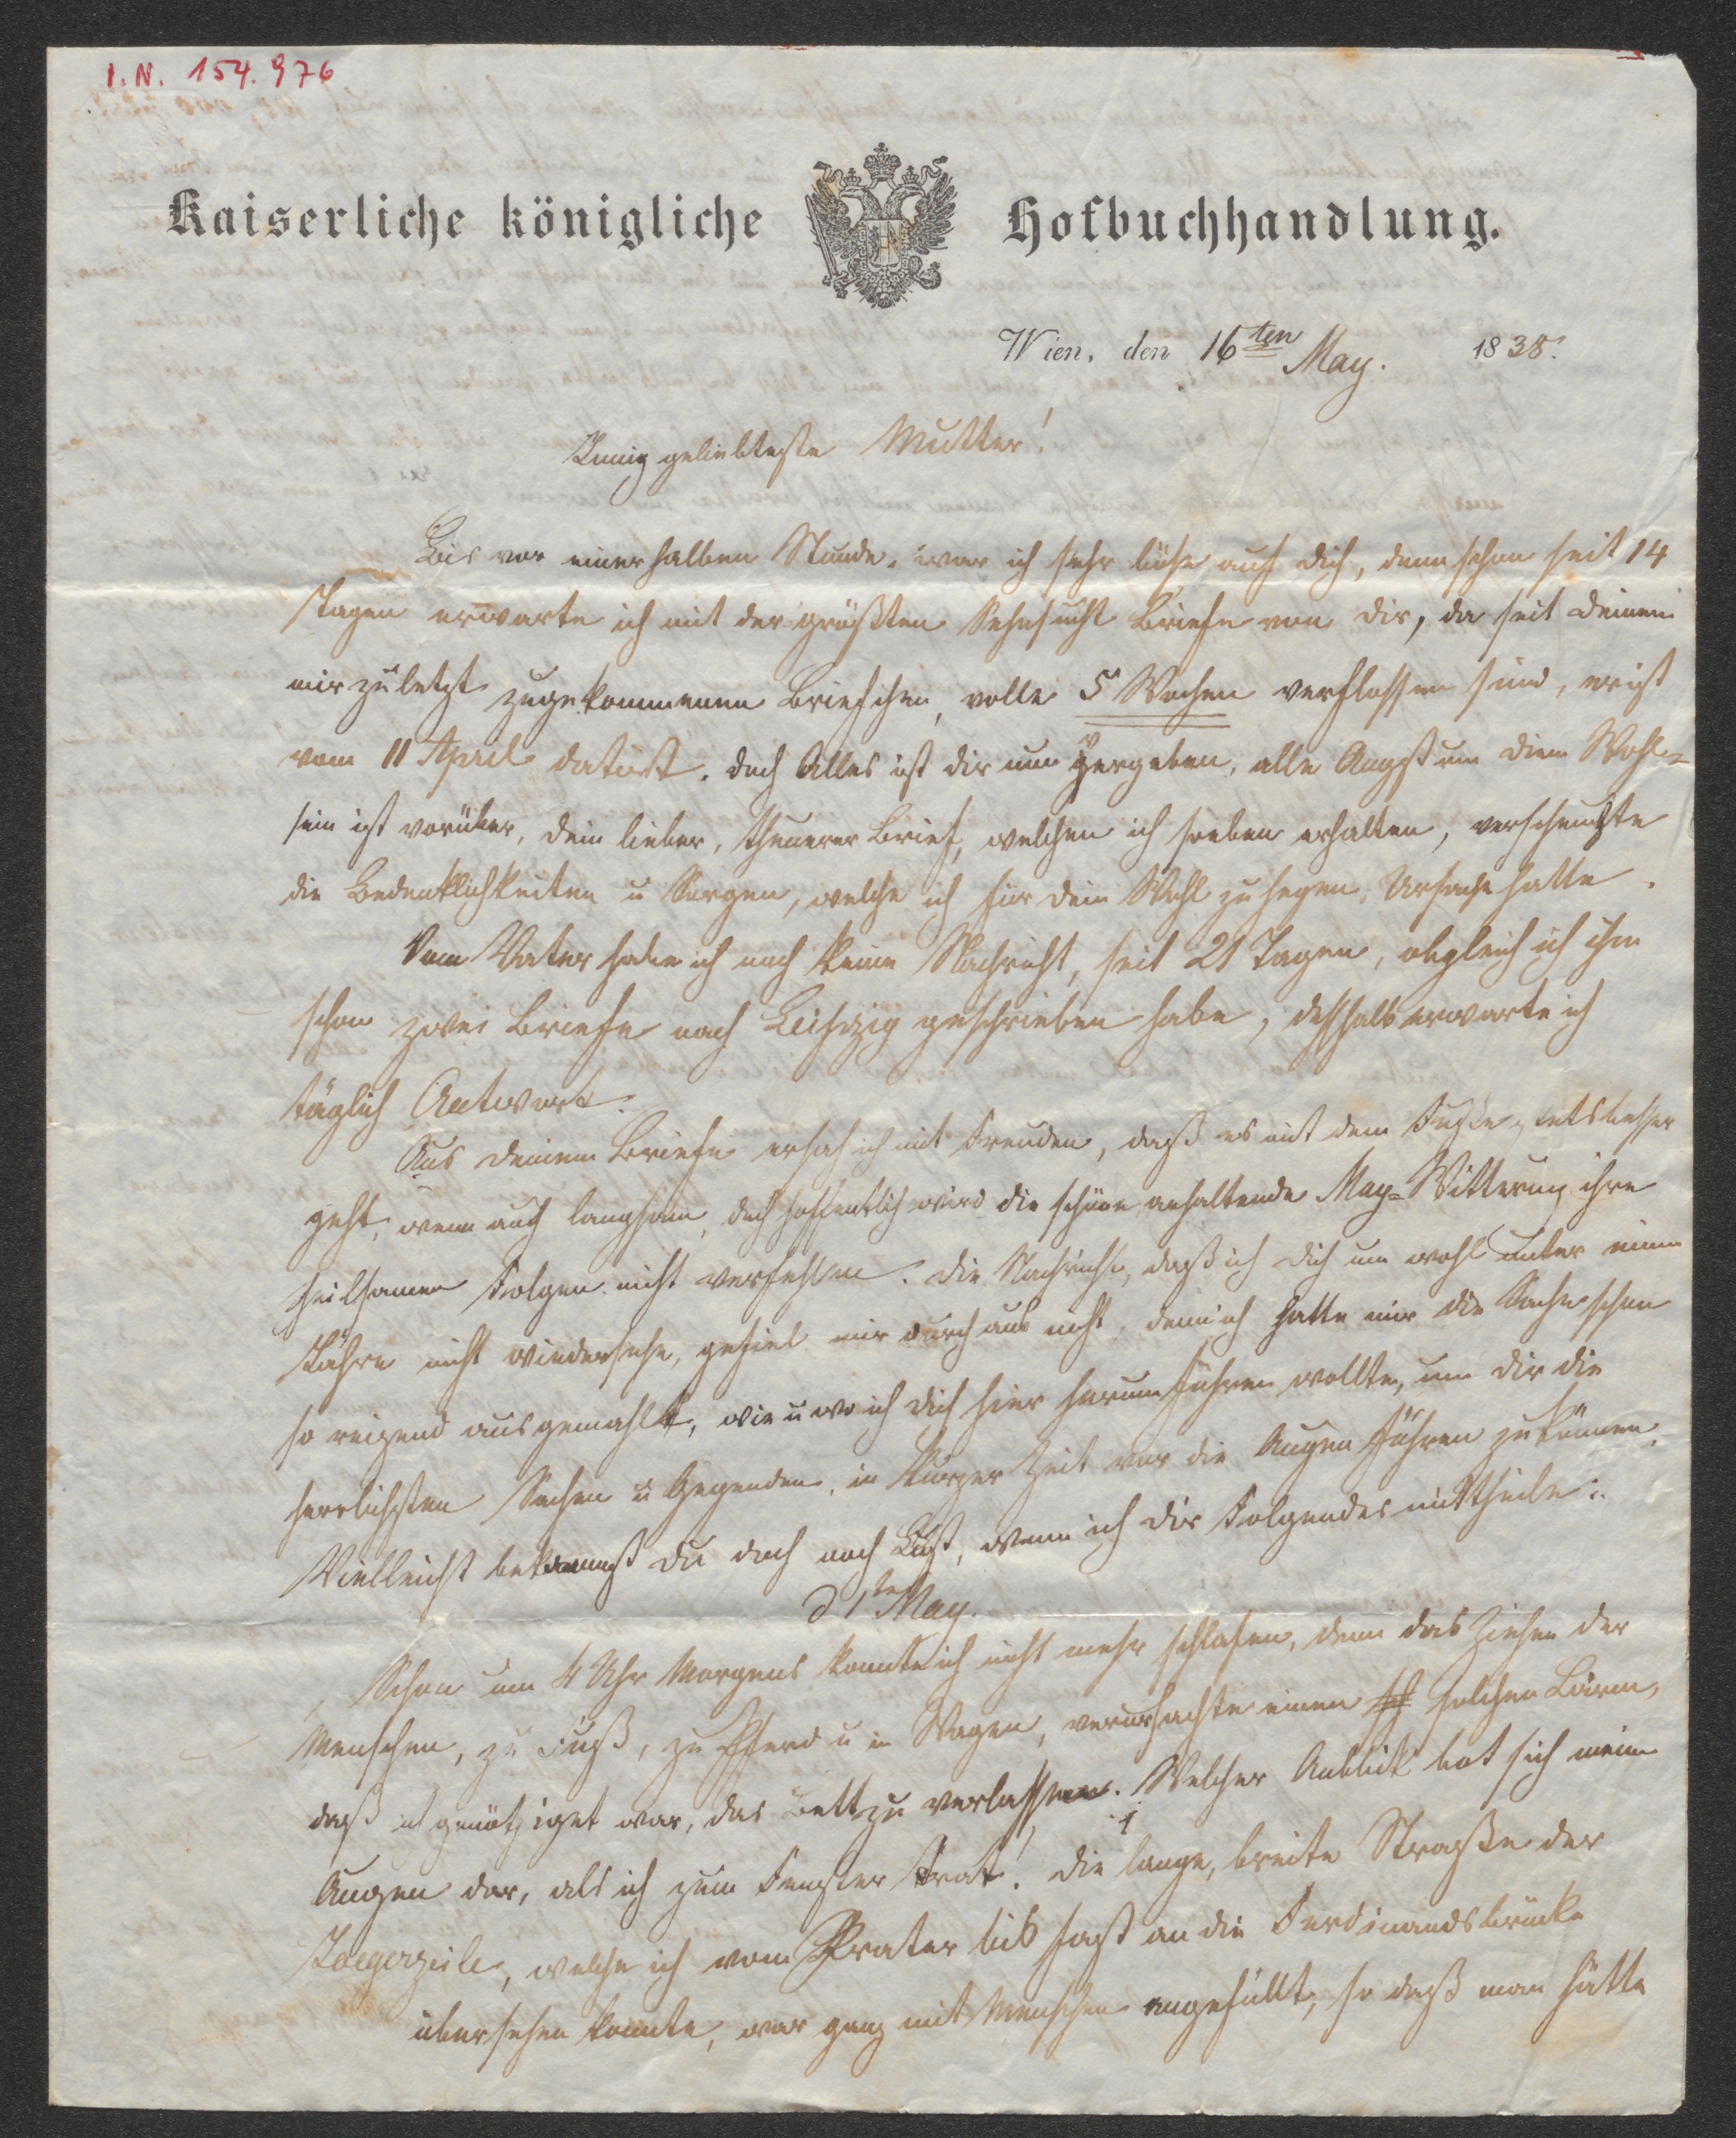 I.N. 154.976
Kaiserliche königliche Hofbuchhandlung.
Wien, den 16ten May. 1838.
Innig geliebteste Mutter!
Bis vor einer halben Stunde, war ich sehr böse auf dich, denn schon seit 14
Tagen erwarte ich mit der größten Sehnsucht Briefe von dir, da seit deinem
mir zuletzt zugekommenen Briefchen, volle 5 Wochen verflossen sind, er ist
vom 11 April datirt. doch Alles ist dir nun vergeben, alle Angst um dein Wohl-
sein ist vorüber, dein lieber, theuerer Brief, welchen ich soeben erhalten, verscheuchte
die Bedenklichkeiten u Sorgen, welche ich für dein Wohl zu hegen, Ursache hatte.
Vom Vater habe ich noch keine Nachricht, seit 21 Tagen, obgleich ich ihm
schon zwei Briefe nach Leipzig geschrieben habe, deßhalb erwarte ich
täglich Antwort.
Aus deinem Briefe ersah ich mit Freuden, daß es mit dem Fuße stets besser
geht, wenn auch langsam, doch hoffentlich wird die schöne anhaltende May-Witterung ihre
heilsamen Folgen nicht verfehlen. Die Nachricht, daß ich dich nun wohl unter einem
Jahre nicht wiedersehe, gefiel mir durchaus nicht, denn ich hatte mir die Sache schon
so reizend ausgemahlt, wie u wo ich dich hier herumführen wollte, um dir die
herrlichsten Sachen u Gegenden, in kurzer Zeit vor die Augen führen zu können.
Vielleicht bekommst du doch noch Lust, wenn ich dir Folgendes mittheile:
d 1te May.
Schon um 4 Uhr Morgens konnte ich nicht mehr schlafen, denn das Ziehen der
Menschen, zu Fuß, zu Pferd u in Wagen, verursachte einen solchen Lärm,
daß ich genöthiget war, das Bett zu verlassen. Welcher Anblick bot sich meinen
Augen dar, als ich zum Fenster trat! Die lange, breite Straße der
Jaegerzeile, welche ich vom Prater bis fast an die Ferdinandsbrücke
übersehen konnte, war ganz mit Menschen angefüllt, so daß man hätte